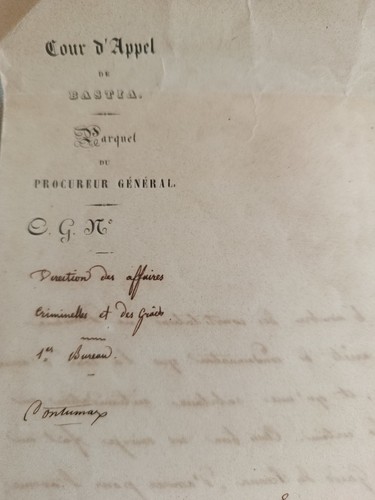 Cour d'Appel
DE
BASTIA.
Parquet
DU
PROCUREUR GÉNÉRAL.
C. G. N°
Direction des affaires
Criminelles et des Grâces
1er Bureau.
Contumax